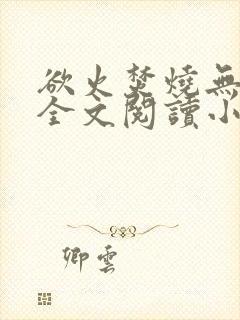 欲火焚燒無
全文閱讀小
卿雲